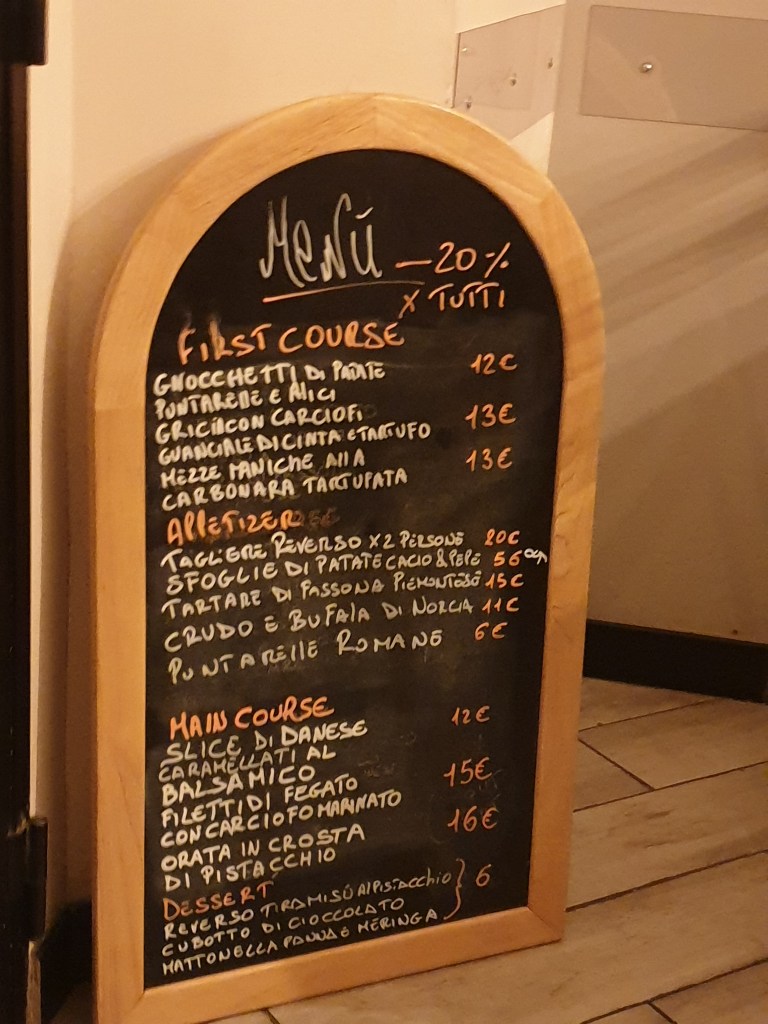 MENÚ
-20%
X TUTTI
FIRST COURSE
GNOCCHETTI DI PATATE 12€
PUNTARELLE E ALICI
GRICIA CON CARCIOFI 13€
GUANCIALE DI CINTA E TARTUFO
MEZZE MANICHE ALLA 13€
CARBONARA TARTUFATA
APPETIZER
TAGLIERE REVERSO X2 PERSONE 20€
SFOGLIE DI PATATE CACIO & PEPE 5€
TARTARE DI FASSONA PIEMONTESE 15€
CRUDO E BUFALA DI NORCIA 11€
PUNTARELLE ROMANE 6€
MAIN COURSE
SLICE DI DANESE 12€
CARAMELLATI AL
BALSAMICO
FILETTI DI FEGATO 15€
CON CARCIOFO MARINATO
ORATA IN CROSTA 16€
DI PISTACCHIO
DESSERT
REVERSO TIRAMISÚ AL PISTACCHIO } 6
CUBOTTO DI CIOCCOLATO
MATTONELLA PANNA E MERINGA